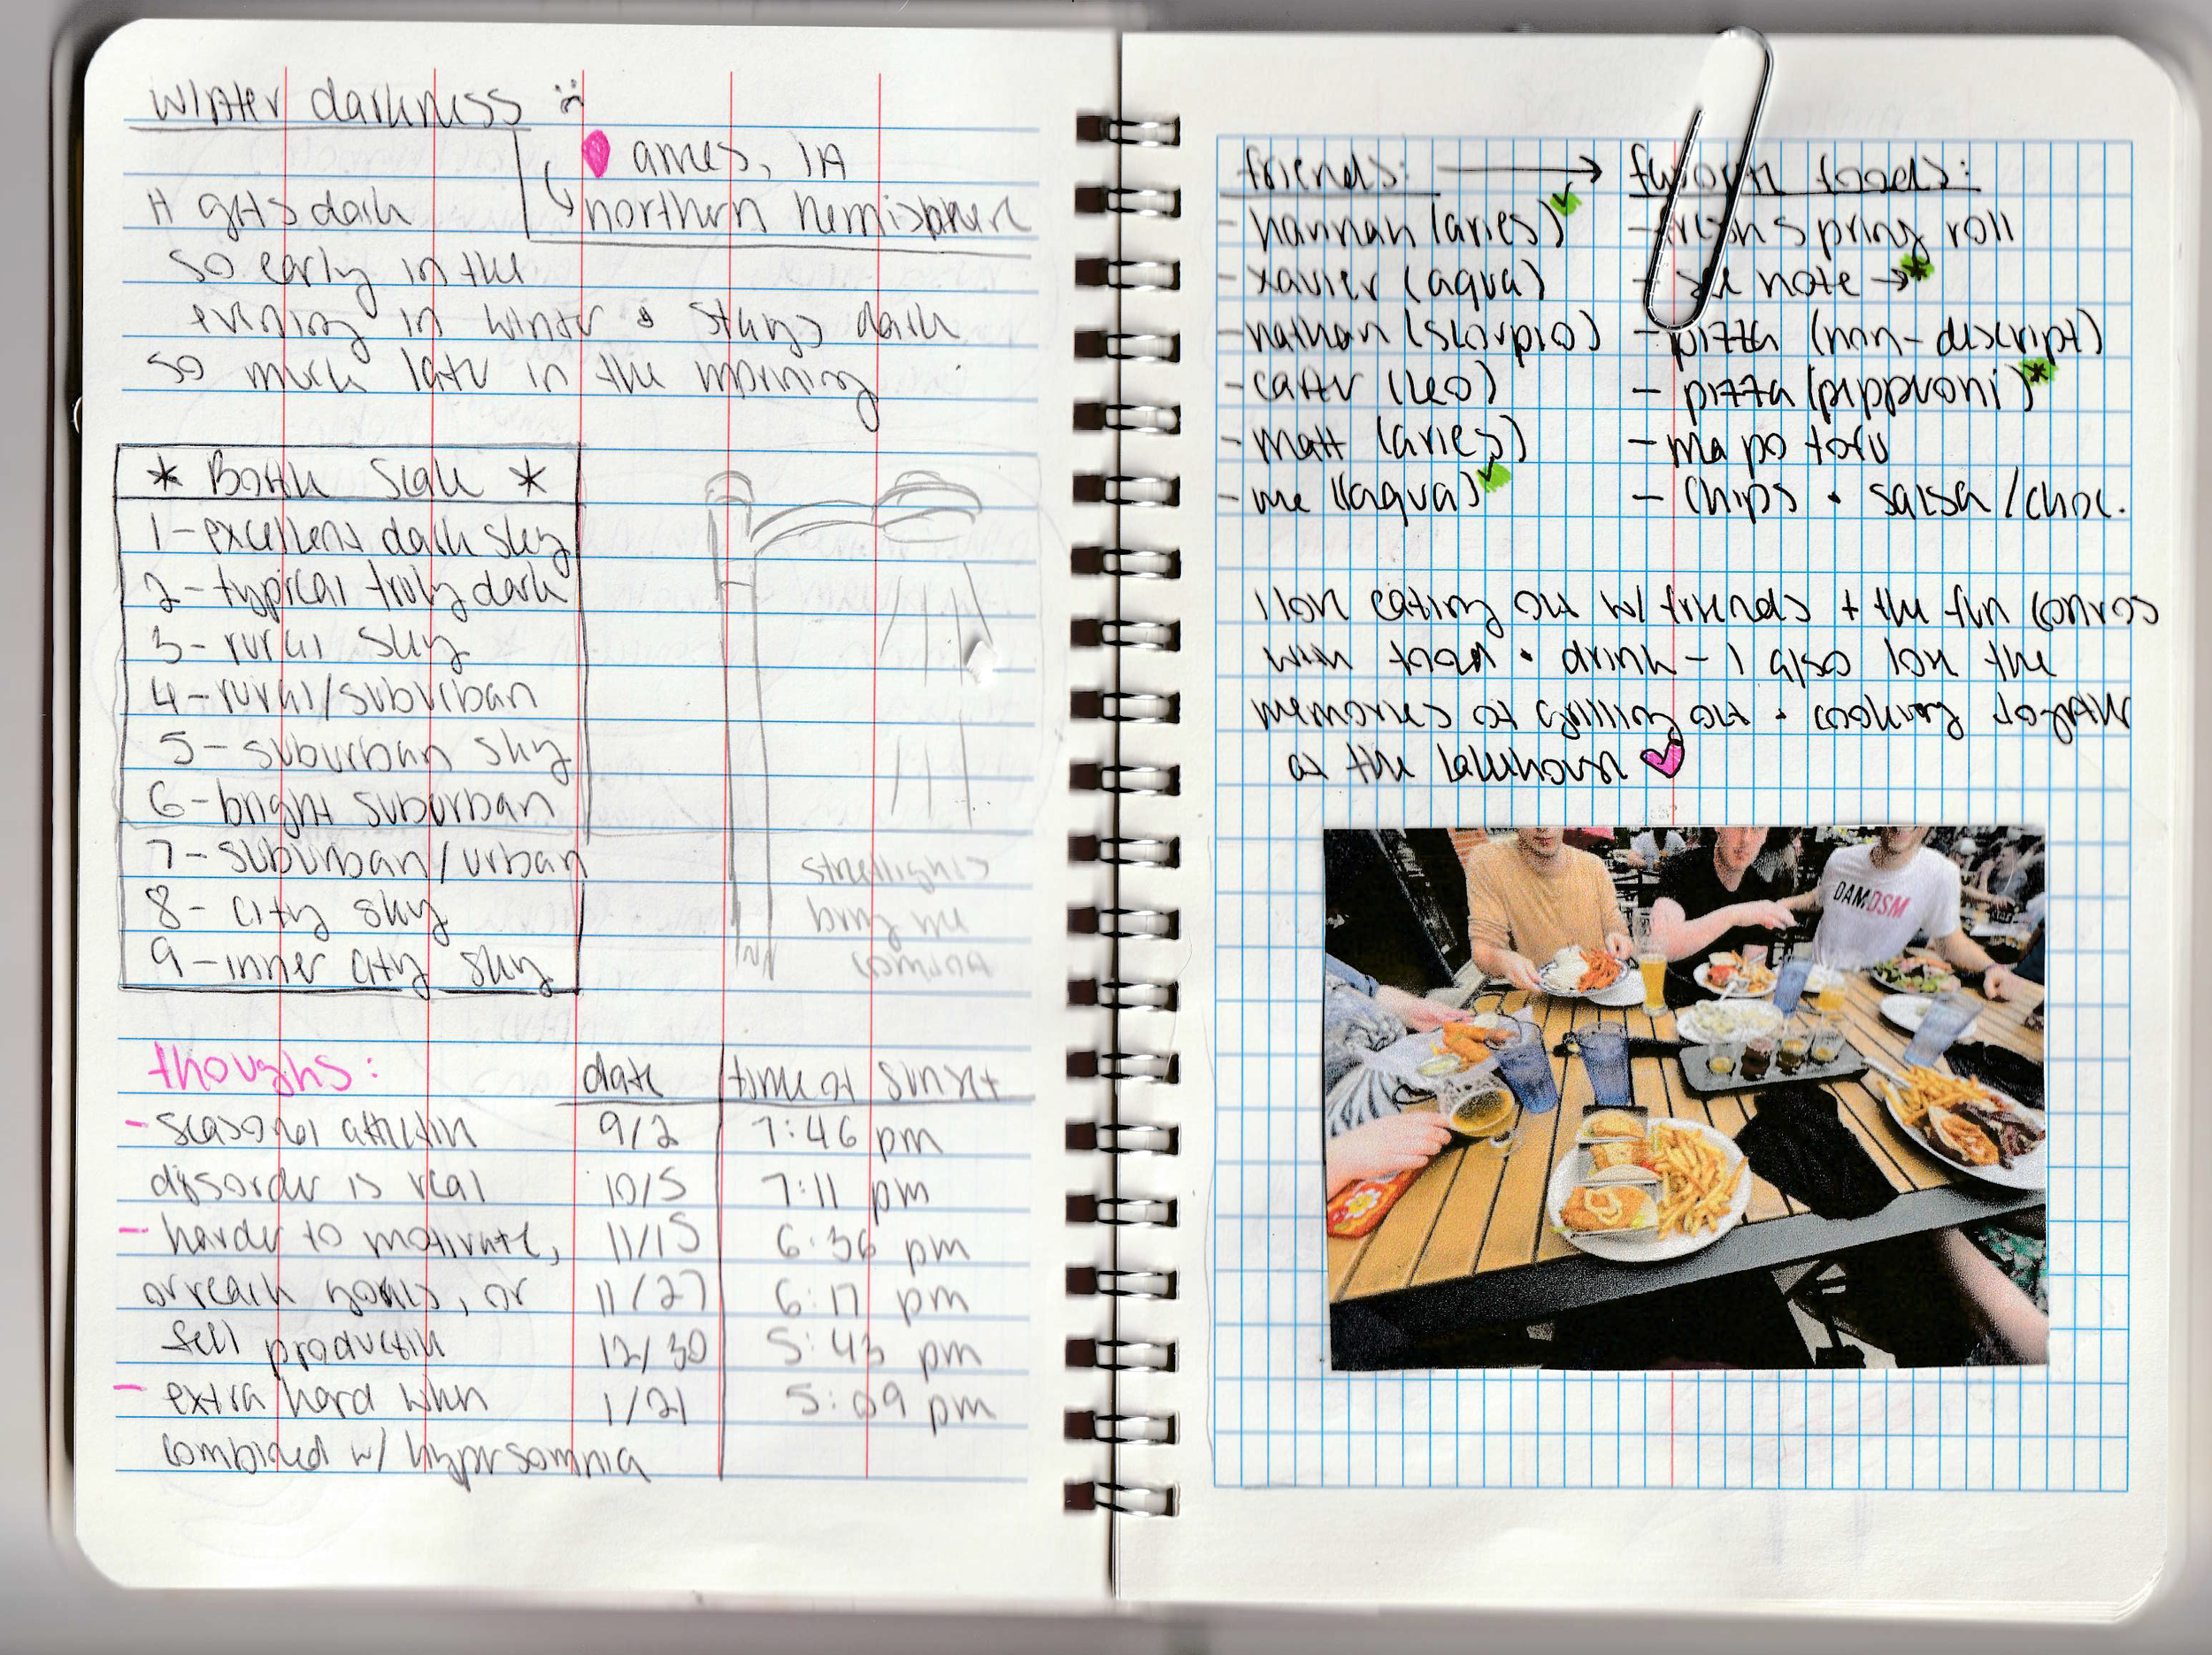 winter darkness :(
ames, IA
northern hemisphere
it gets dark
so early in the
evening in winter & stays dark
so much later in the morning
* Bortle Scale *
1 - excellent dark sky
2 - typical truly dark
3 - rural sky
4 - rural/suburban
5 - suburban sky
6 - bright suburban
7 - suburban/urban
8 - city sky
9 - inner city sky
streetlights
bring me
comfort
thoughs:
- seasonal affective
disorder is real
- harder to motivate,
or reach goals, or
feel productive
- extra hard when
combined w/ hypersomnia
date | time of sunset
9/2 | 7:46 pm
10/5 | 7:11 pm
11/15 | 6:36 pm
11/27 | 6:17 pm
12/30 | 5:43 pm
1/21 | 5:09 pm
friends: → favorite foods:
- hannah (aries) ✓ - fresh spring roll
- xavier (aqua) - see note → *
- nathan (scorpio) - pizza (non-descript)
- carter (leo) - pizza (pepperoni) *
- matt (aries) - ma po tofu
- me (aqua) ✓ - chips + salsa/choc.
I love eating out w/ friends + the fun convos
with food + drink - I also love the
memories of grilling out + cooking together
at the lakehouse ♥
DAMDSM